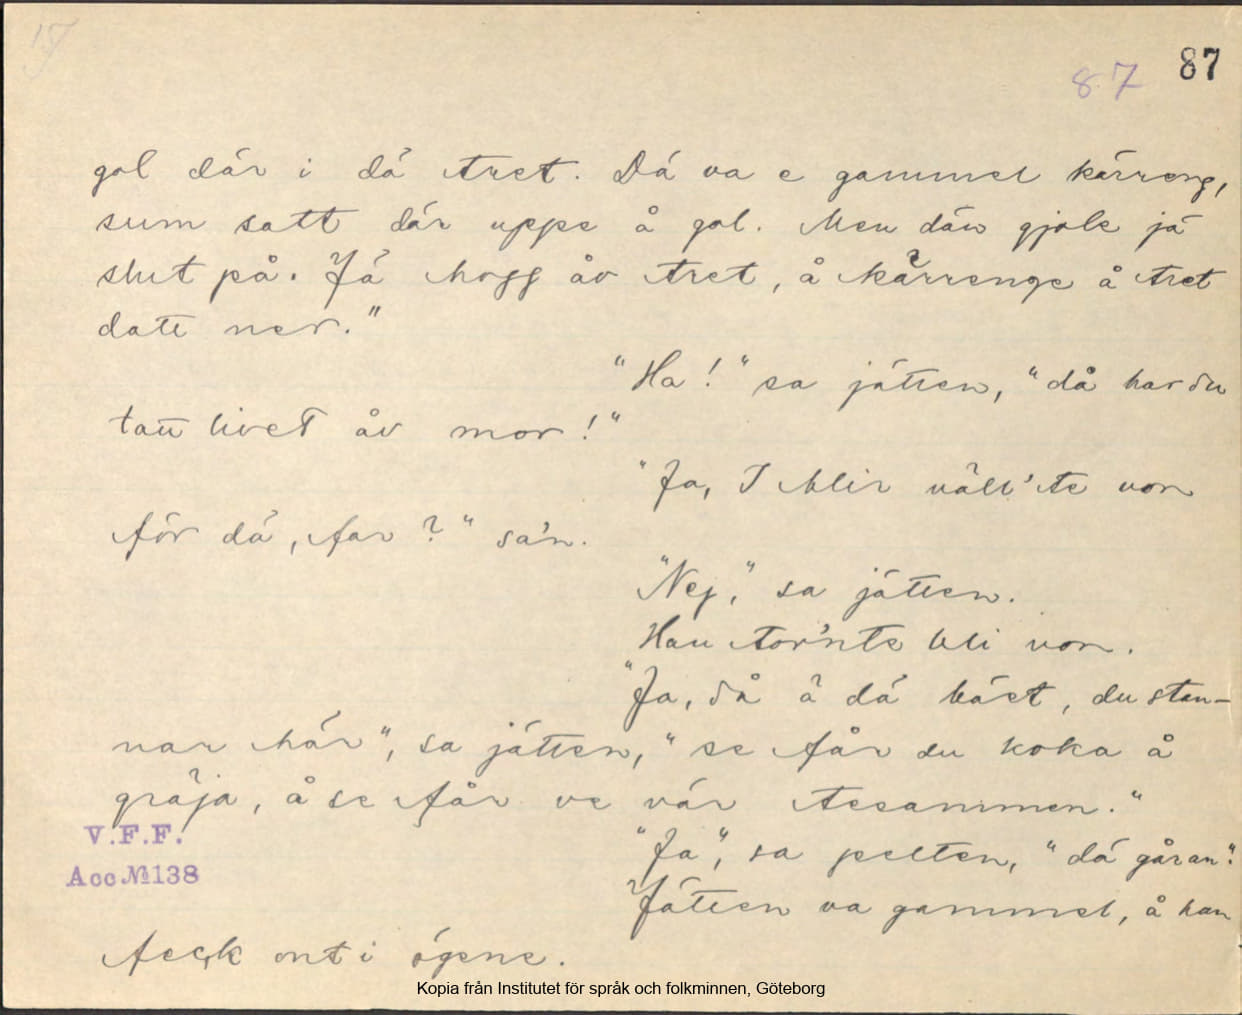 87
87
gol där i dä tret. Dä va e gammel kärreng,
sum satt där uppe å gol. Men dän gjole jä
slut på. Jä hogg åv tret, å kärrenge å tret
datt ner."
"Ha!" sa jätten, "då har du
tatt livet åv mor!"
"Ja, I blir väll'te von
för dä, far?" sa'n.
"Nej," sa jätten.
Han tor'nte bli von.
"Ja, då ä dä bäst, du stan-
nar här", sa jätten, "se får du koka å
gräja, å se får ve vär tesammen."
V.F.F.
Acc № 138
"Ja", sa pelten, "dä går an".
Jätten va gammel, å han
feck ont i ögene.
Kopia från Institutet för språk och folkminnen, Göteborg